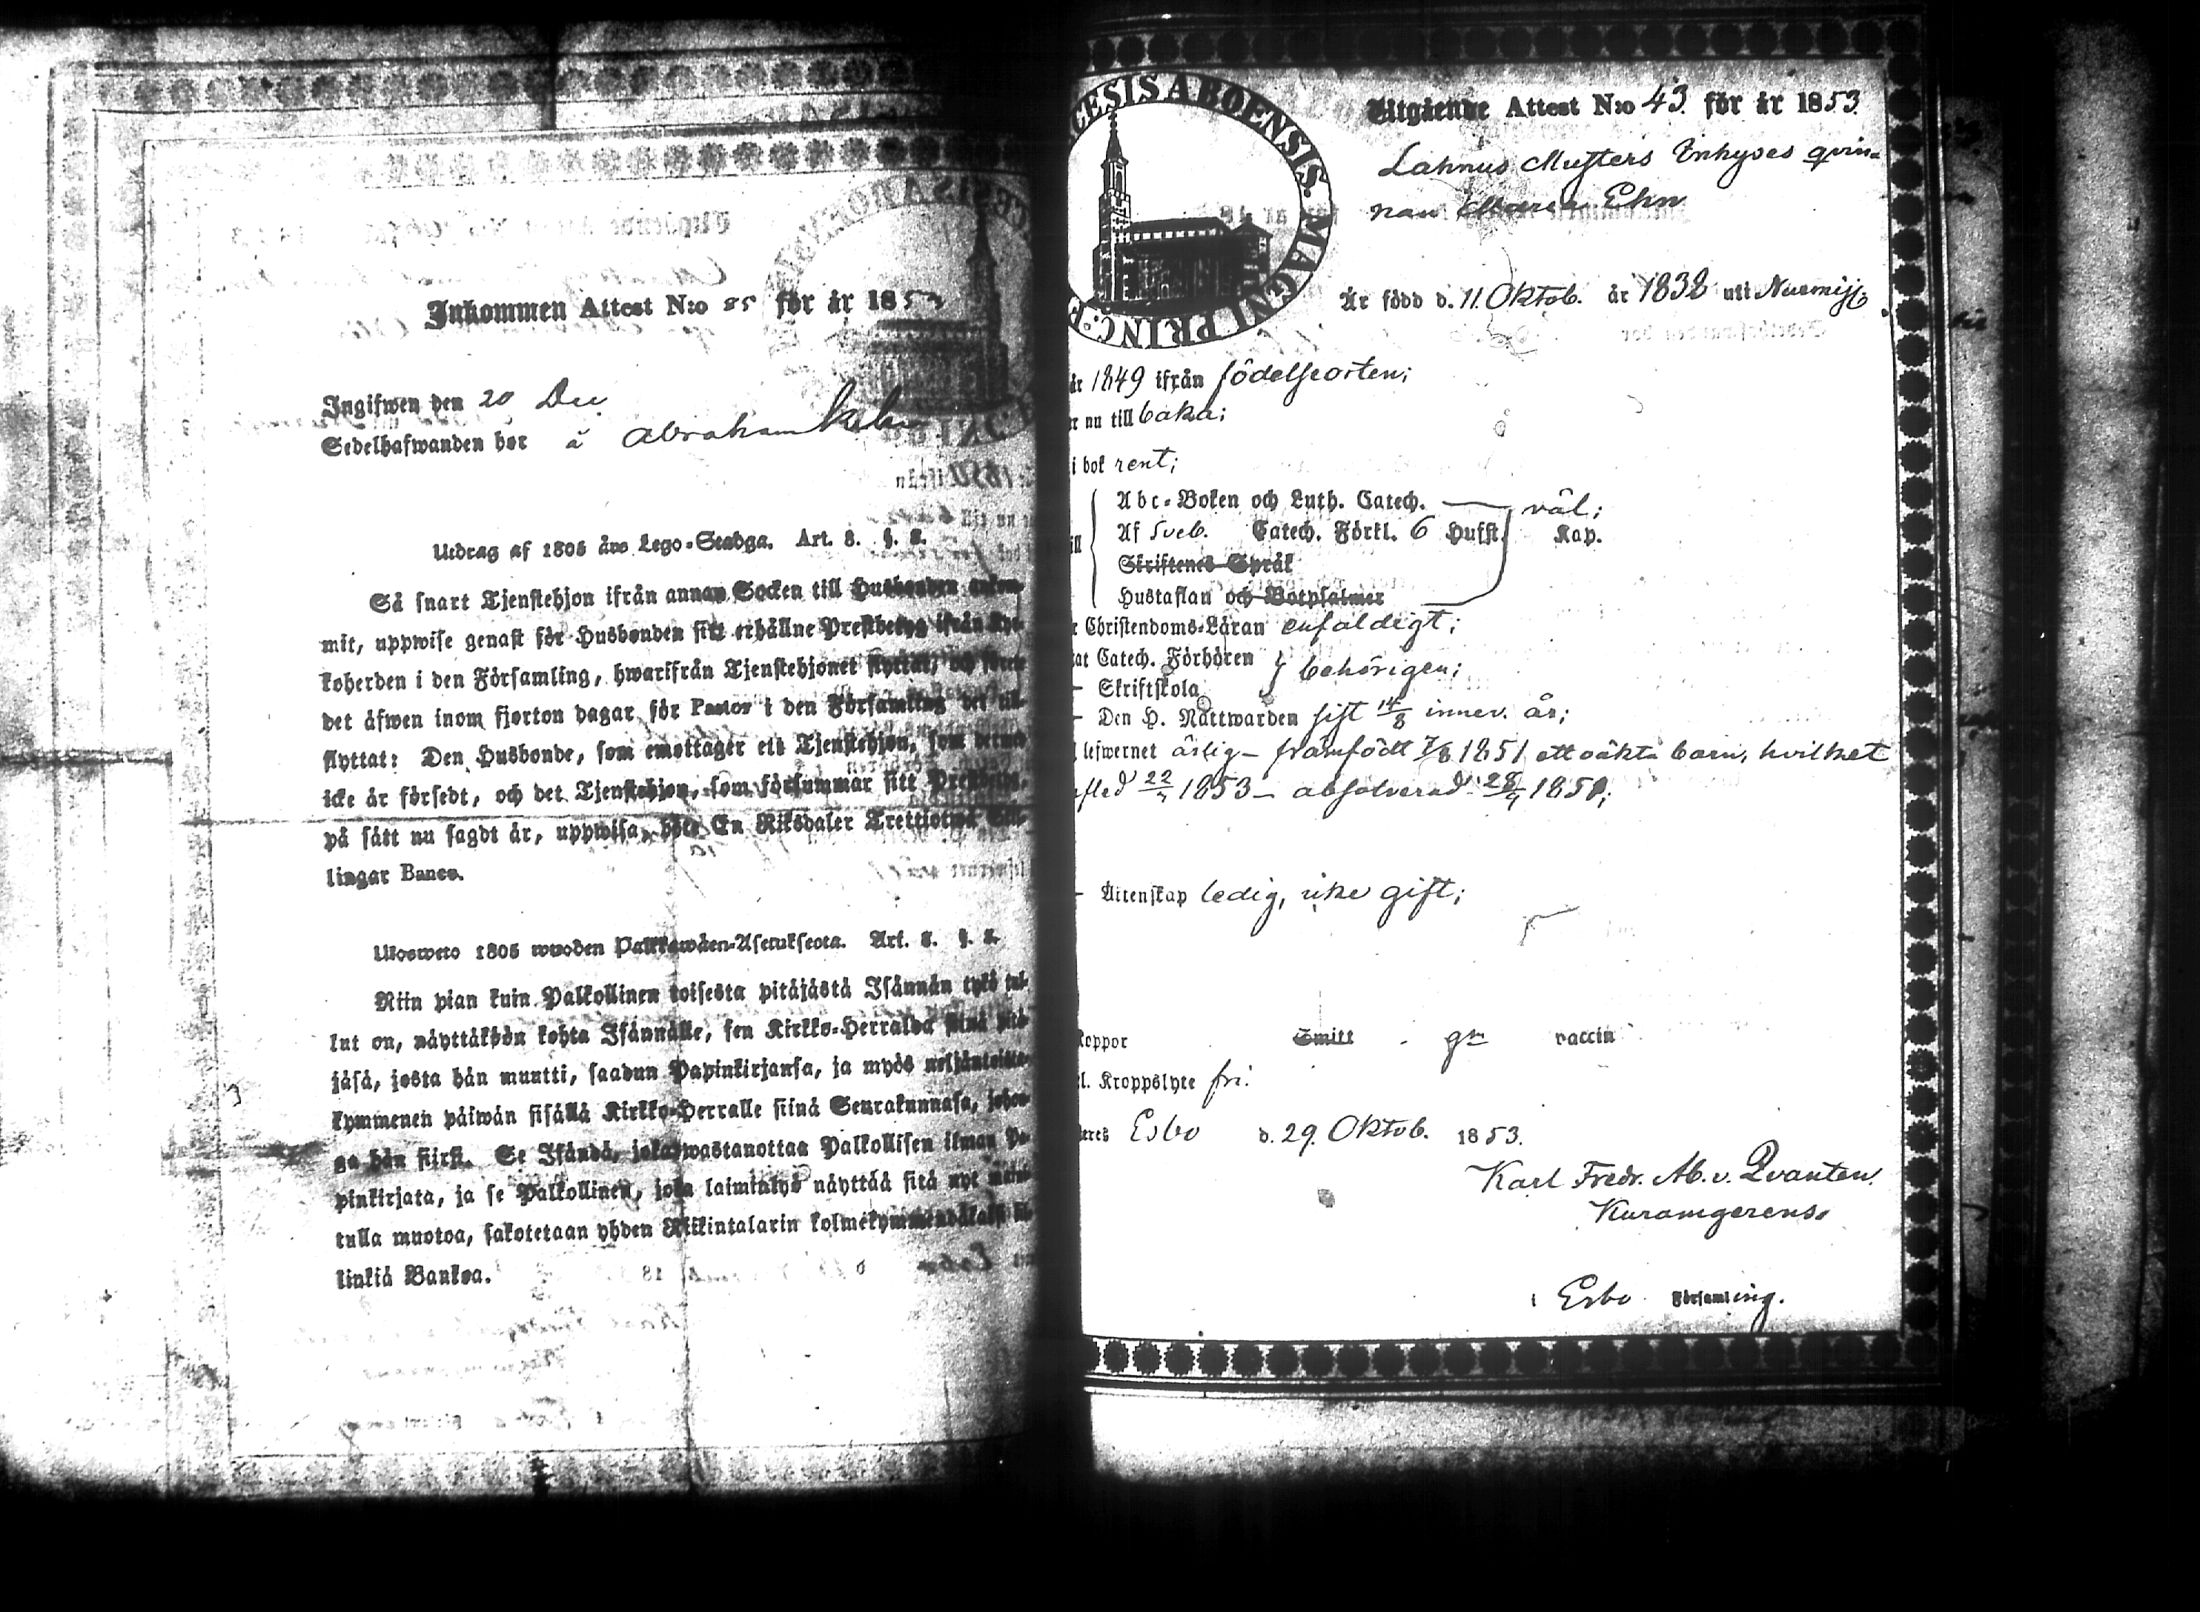 Inkommen Attest N:o för år 185
Ingifwen den 20 Dec
Sedelhafwanden bor å Abraham
Utdrag af 1805 års Lego-Stadga. Art. 8. §. 8.
Så snart Tjenstehjon ifrån annan Socken till Husbonden ankom-
mit, uppwise genast för Husbonden sitt erhållne Prestbetyg ifrån Kyr-
koherden i den Församling, hwarifrån Tjenstehjonet flyttat, och förete
det äfwen inom fjorton dagar för Pastor i den Församling det till-
flyttat: Den Husbonde, som emottager ett Tjenstehjon, som dermed
icke är försedt, och det Tjenstehjon, som försummar sitt Prestbetyg,
på sätt nu sagdt är, uppwisa, böte En Riksdaler Trettiotwå Skil-
lingar Banco.
Ulosweto 1805 wuoden Palkkawäen-Asetuksesta. Art. 8. §. 8.
Niin pian kuin Palkollinen toisesta pitäjästä Isännän tykö tul-
lut on, näyttäköön kohta Isännälle, sen Kirkko-Herralda siinä pitä-
jäsä, josta hän muutti, saadun Papinkirjansa, ja myös neljäntoista-
kymmenen päiwän sisällä Kirkko-Herralle siinä Seurakunnasa, johon-
ga hän siirsi. Se Isändä, joka wastanottaa Palkollisen ilman Pa-
pinkirjata, ja se Palkollinen, joka laiminlyö näyttää sitä nyt mai-
tulla muotoa, sakotetaan yhden Riikintalarin kolmekymmendäkaksi kil-
linkiä Bankoa.
DIECESIS ABOENSIS. MAGNI PRINC: F
Utgående Attest N:o 43 för år 1853.
Lahnus Mufters Inhyses qvin-
nan Maria Ehn
Är född d. 11 Oktob. år 1832 uti Nurmijv
år 1849 ifrån födelseorten;
nu till baka;
i bok rent;
Abc-Boken och Luth. Catech. väl;
Af Sveb. Catech. Förkl. 6 Hufst. Kap.
Skriftenes Språk
Hustaflan och Botpsalmer
Christendoms-Läran enfaldigt;
Catech. Förhören
behörigen;
Skriftskola
Den H. Nattwarden sist 14/8 innev. år;
lefwernet ärlig - framfödt 7/8 1851 ett oäkta barn, hvilket
1853 - absolverad
Äktenskap ledig, icke gift;
Koppor Smitt gm vaccin
l. Kroppslyte fri.
Esbo d. 29. Oktob. 1853.
Karl Fredr. Ab. v. Qvanten.
i Esbo Församling.